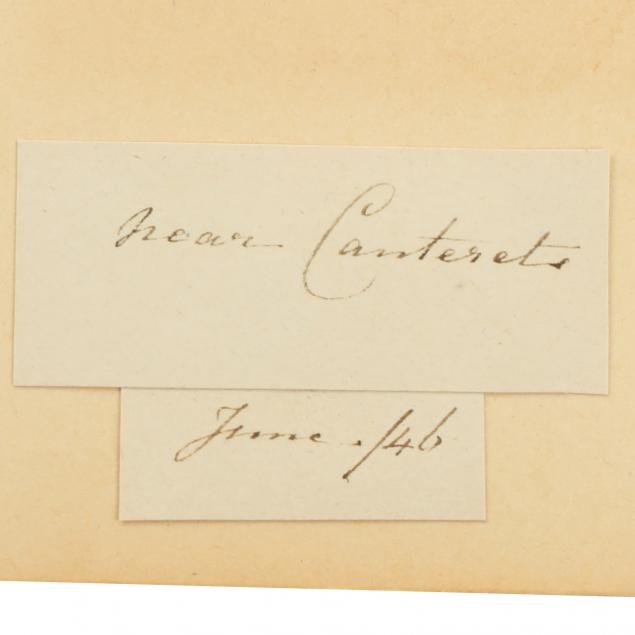 near Cauterets
June . /46